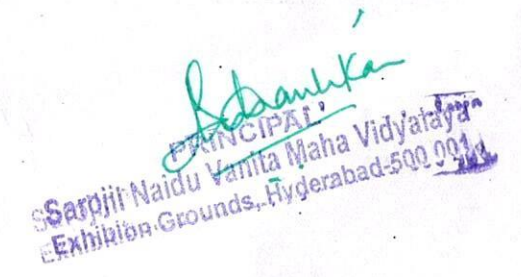 PRINCIPAL
Sarojii Naidu Vanita Maha Vidyalaya
Exhibition Grounds, Hyderabad-500 001